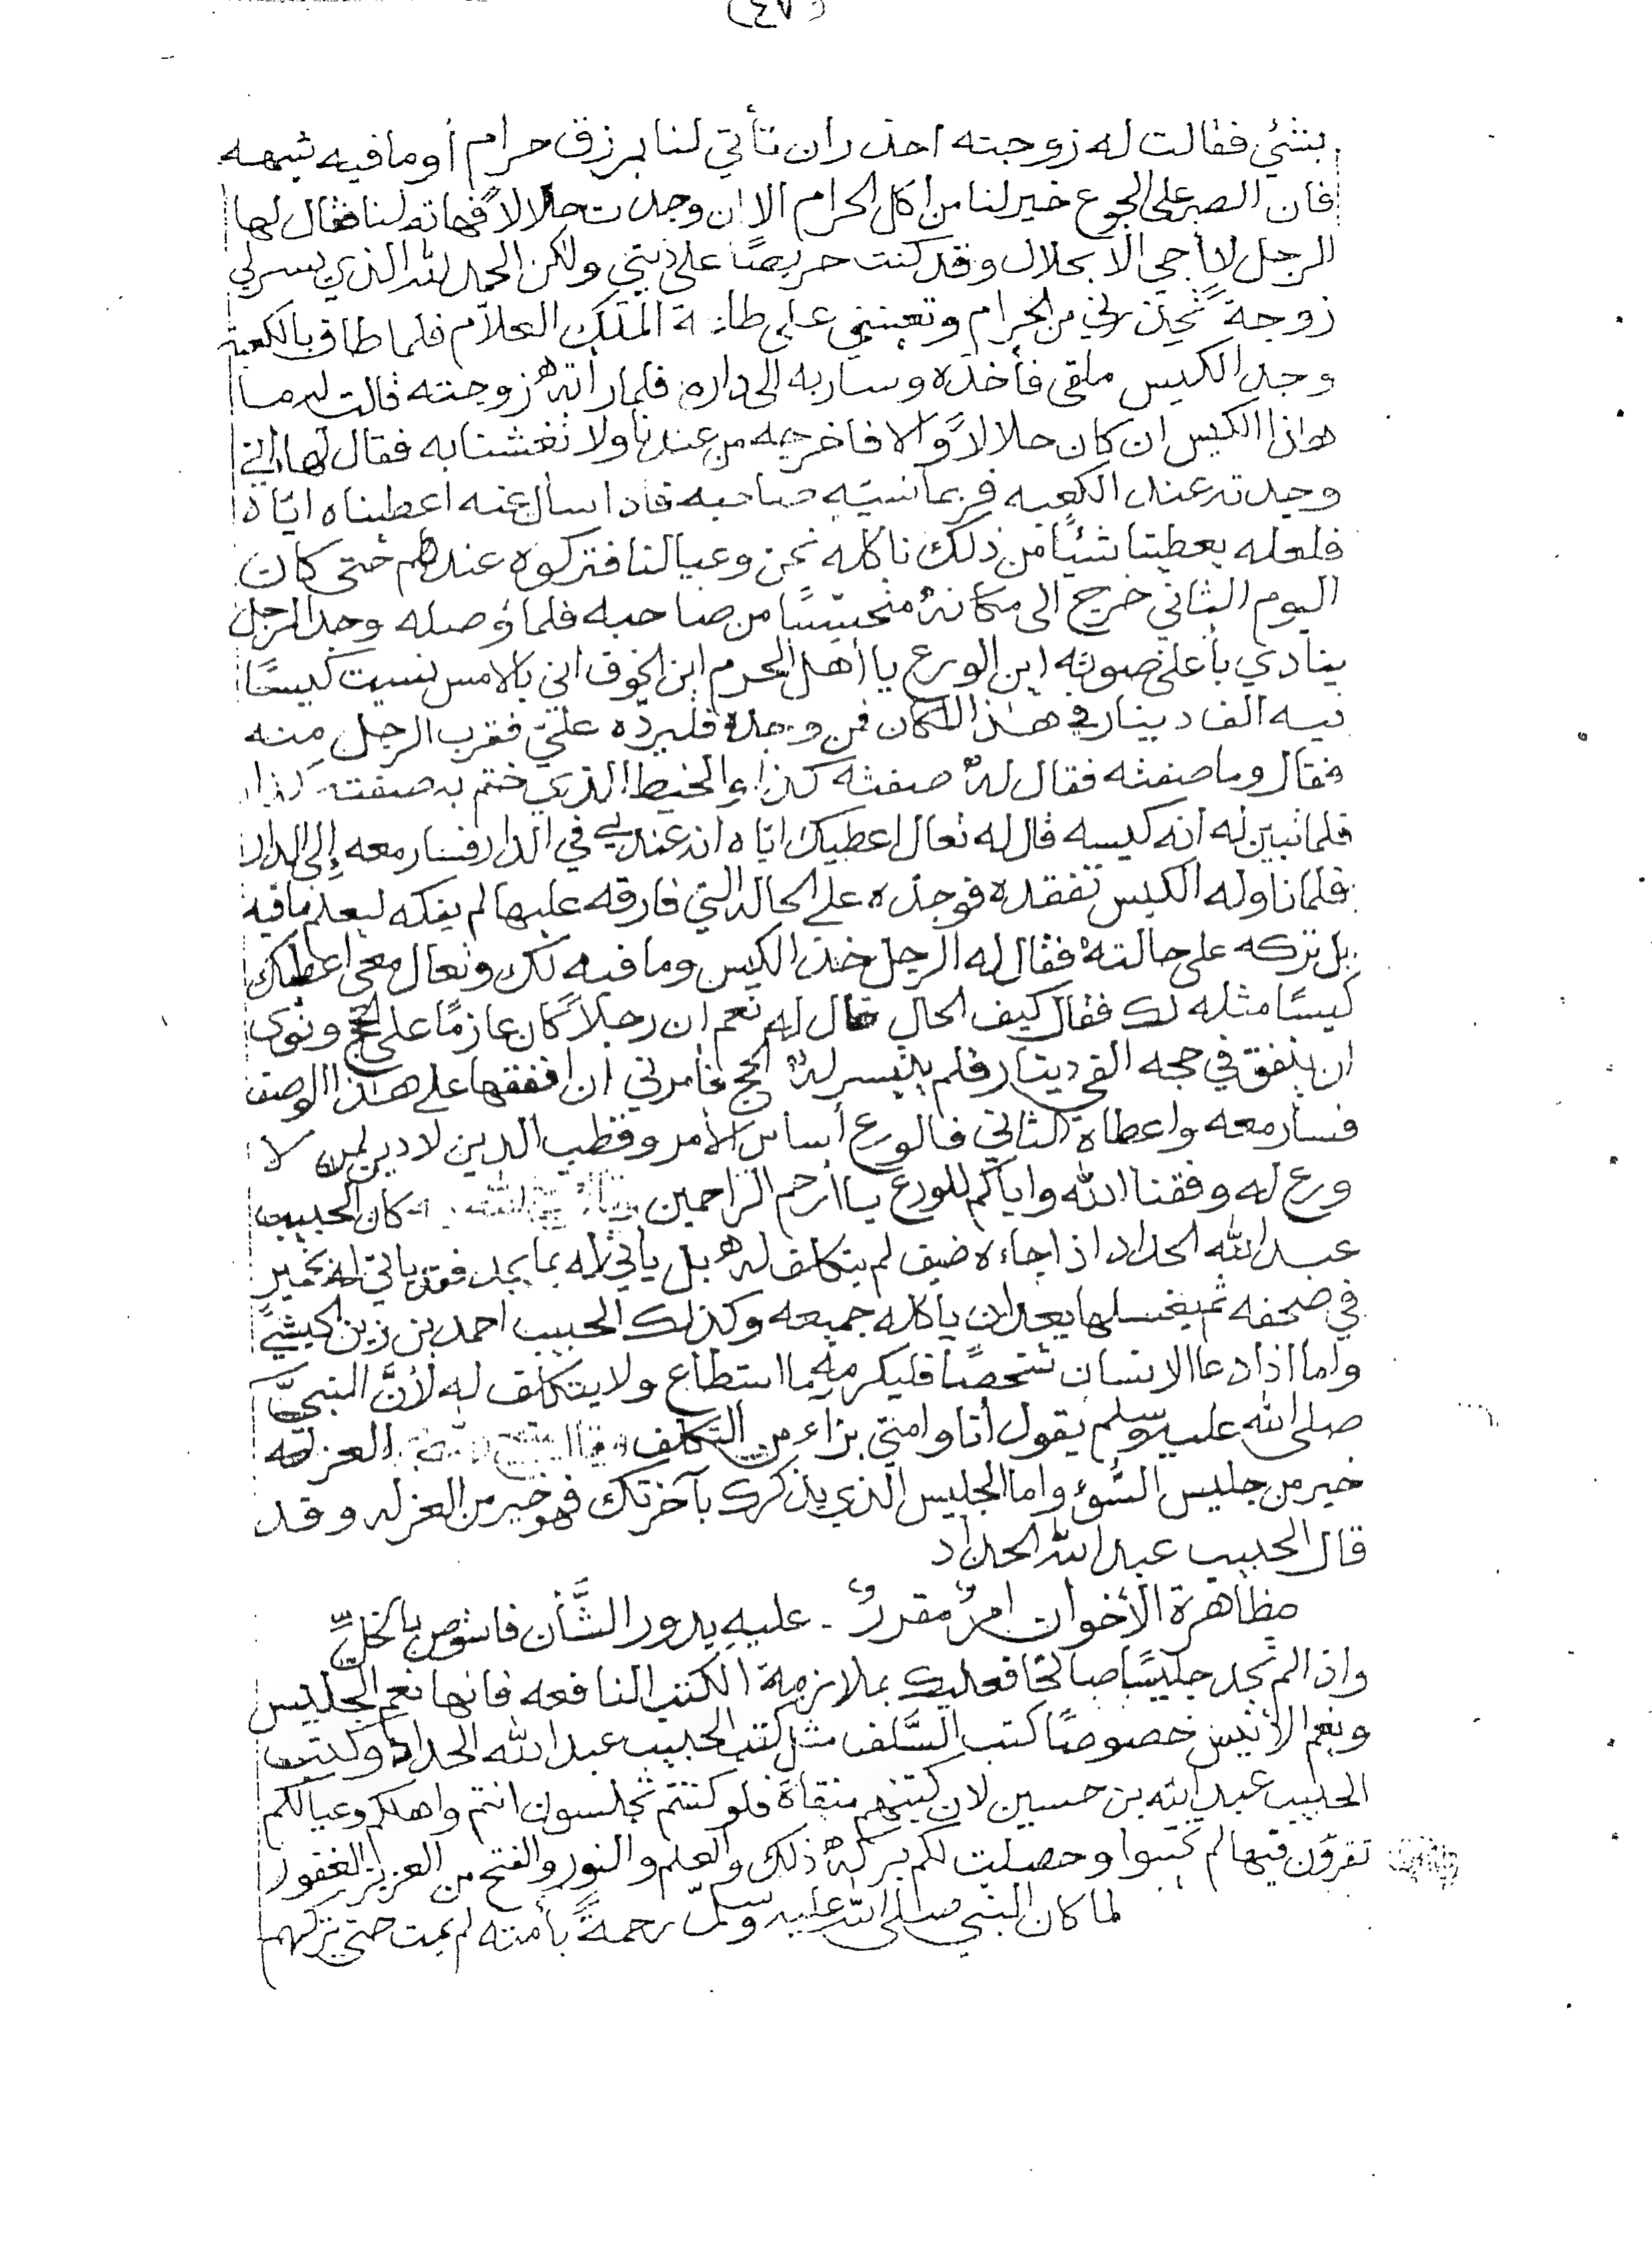 (٤٧)
بشئي فقالت له زوجته احذر ان تأتي لنا برزق حرام أو ما فيه شبهه
فان الصبر على الجوع خير لنا من اكل الحرام الا ان وجدت حلالاً فهاته لنا فقال لها
الرجل لا أجي الا بحلال وقد كنت حريصًا على ذيتي ولكن الحمد لله الذي يسر لي
زوجة تحذرني من الحرام وتعينني على طاعة الملك العلاّم فلما طاف بالكعبة
وجد الكيس ملقى فأخذه وسار به الى داره فلما رأته زوجته قالت له ما
هاذا الكيس ان كان حلالاً والا فاخرجه من عندنا ولا تغشنا به فقال لها إني
وجدته عند الكعبه فربما نسيه صاحبه فاذا سأل عنه اعطيناه ايّاه
فلعله يعطينا شئيًا من ذلك ناكله نحن وعيالنا فتركوه عندهم حتى كان
اليوم الثاني خرج الى مكانه متحسّسًا من صاحبه فلما وصله وجد الرجل
ينادي بأعلى صوته اين الورع يا أهل الحرم اين الخوف اني بالامس نسيت كيسًا
فيه الف دينار في هذا المكان فمن وجده فليردّه عليّ فقرب الرجل منه
فقال وما صفته فقال له صفته كذا والخيط الذي ختم به صفته كذا
فلما تبين له أنه كيسه قال له تعال اعطيك ايّاه انه عندي في الدار فسار معه إلى الدار
فلما ناوله الكيس تفقده فوجده على الحال التي فارقه عليها لم يفكه ليعلم ما فيه
بل تركه على حالته فقال له الرجل خذ الكيس وما فيه لك وتعال معي اعطيك
كيسًا مثله لك فقال كيف الحال قال له نعم ان رجلاً كان عازمًا على الحج ونوى
ان ينفق في حجه الفي دينار فلم يتيسر له الحج فأمرني أن انفقها على هذا الوصف
فسار معه واعطاه الثاني فالورع أساس الأمر وقطب الدين لا دين لمن لا
ورع له وفقنا الله واياكم للورع يا أرحم الراحمين كان الحبيب
عبد الله الحداد اذا جاءه ضيف لم يتكلف له بل يأتي له بما يجد فقد ياتي له بخمير
في صحفه ثم يغسلها بعد ان ياكله جميعه وكذلك الحبيب احمد بن زين الحبشيّ
واما اذا دعا الانسان شخصًا فليكرمه ما استطاع ولا يتكلف له لأنَّ النبيَّ
صلى الله عليه وسلم يقول أنا وامتي براء من التكلف العزله
خير من جليس السُّوء واما الجليس الذي يذكرك بآخرتك فهو خير من العزله وقد
قال الحبيب عبد الله الحداد
مظاهرة الأخوان امرٌ مقررٌ - عليه يدور الشَّأن فاشوص بالخلّ
واذا لم تجد جليسًا صالحًا فعليك بملازمة الكتب النافعه فانها نعم الجليس
ونعم الأنيس خصوصًا كتب السَّلف مثل كتب الحبيب عبد الله الحداد وكتب
الحبيب عبد الله بن حسين لان كتبهم منقاة فلو كنتم تجلسون انتم واهلكم وعيالكم
تقرؤن فيها لم تنسوا وحصلت لكم بركة ذلك والعلم والنور والفتح من العزيز الغفور
لما كان النبي صلى الله عليه وسلم رحمةً بأمته لم يمت حتى تركهم